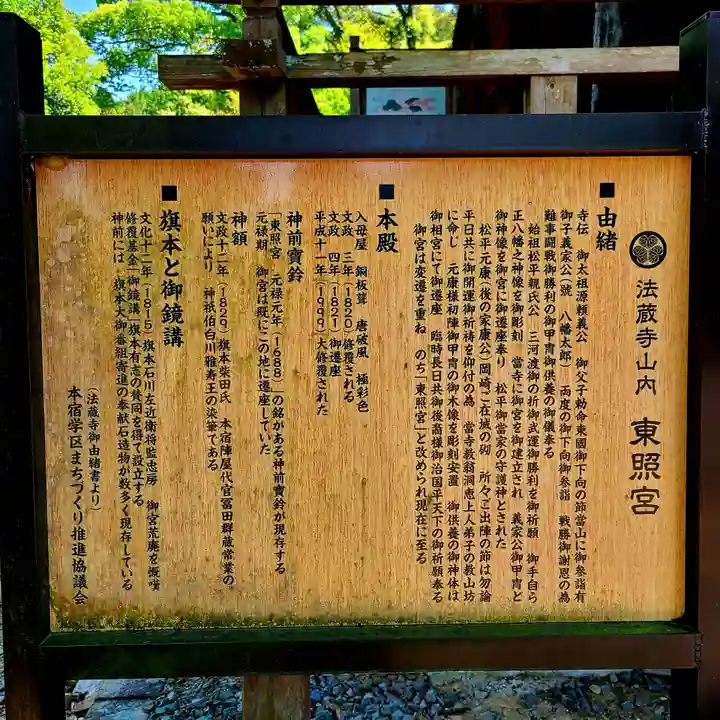 法蔵寺山内 東照宮
■由緒
寺伝 御太祖源頼義公 御父子勅命東國御下向の節當山に御参詣有
御子義家公(號 八幡太郎) 両度の御下向御参詣 戦勝御謝恩の為
難事闘戦御勝利の御甲冑御供養の御儀奉る
始祖松平親氏公 三河渡御の折御武運御勝利を御祈願 御手自ら
正八幡之神像を御彫刻 當寺に御宮を御建立され 義家公御甲冑と
御神像を御宮に御遷座奉り 松平御當家の守護神とされた
松平元康(後の家康公)岡崎ご在城の砌 所々ご出陣の節は勿論
平日共に御開運御祈祷を仰付の為 當寺教翁洞恵上人弟子の教山坊
に命じ 元康様初陣御甲冑の御木像を彫刻安置 御供養の御神体は
御相宮にて御遷座 臨時長日共御後裔様御治国平天下の御祈願奉る
御宮は変遷を重ね のち「東照宮」と改められ現在に至る
■本殿
入母屋 銅板葺 唐破風 極彩色
文政 三年(1820)修覆される
文政 四年(1821)御遷座
平成十一年(1999)大修覆された
神前寶鈴
「東照宮 元禄元年(1688)の銘がある神前寶鈴が現存する
元禄期 御宮は既にこの地に遷座していた
神額
文政十二年(1829)旗本柴田氏 本宿陣屋代官冨田群蔵常業の
願いにより 神祇伯白川雅寿王の染筆である
■旗本と御鏡講
文化十二年(1815)旗本石川左近衛将監忠房 御宮荒廃を慨嘆
修覆基金「御鏡講」旗本有志の賛同を得て設立する
神前には 旗本大御番組寄進の奉献石造物が数多く現存している
(法蔵寺御由緒書より)
本宿学区まちづくり推進協議会